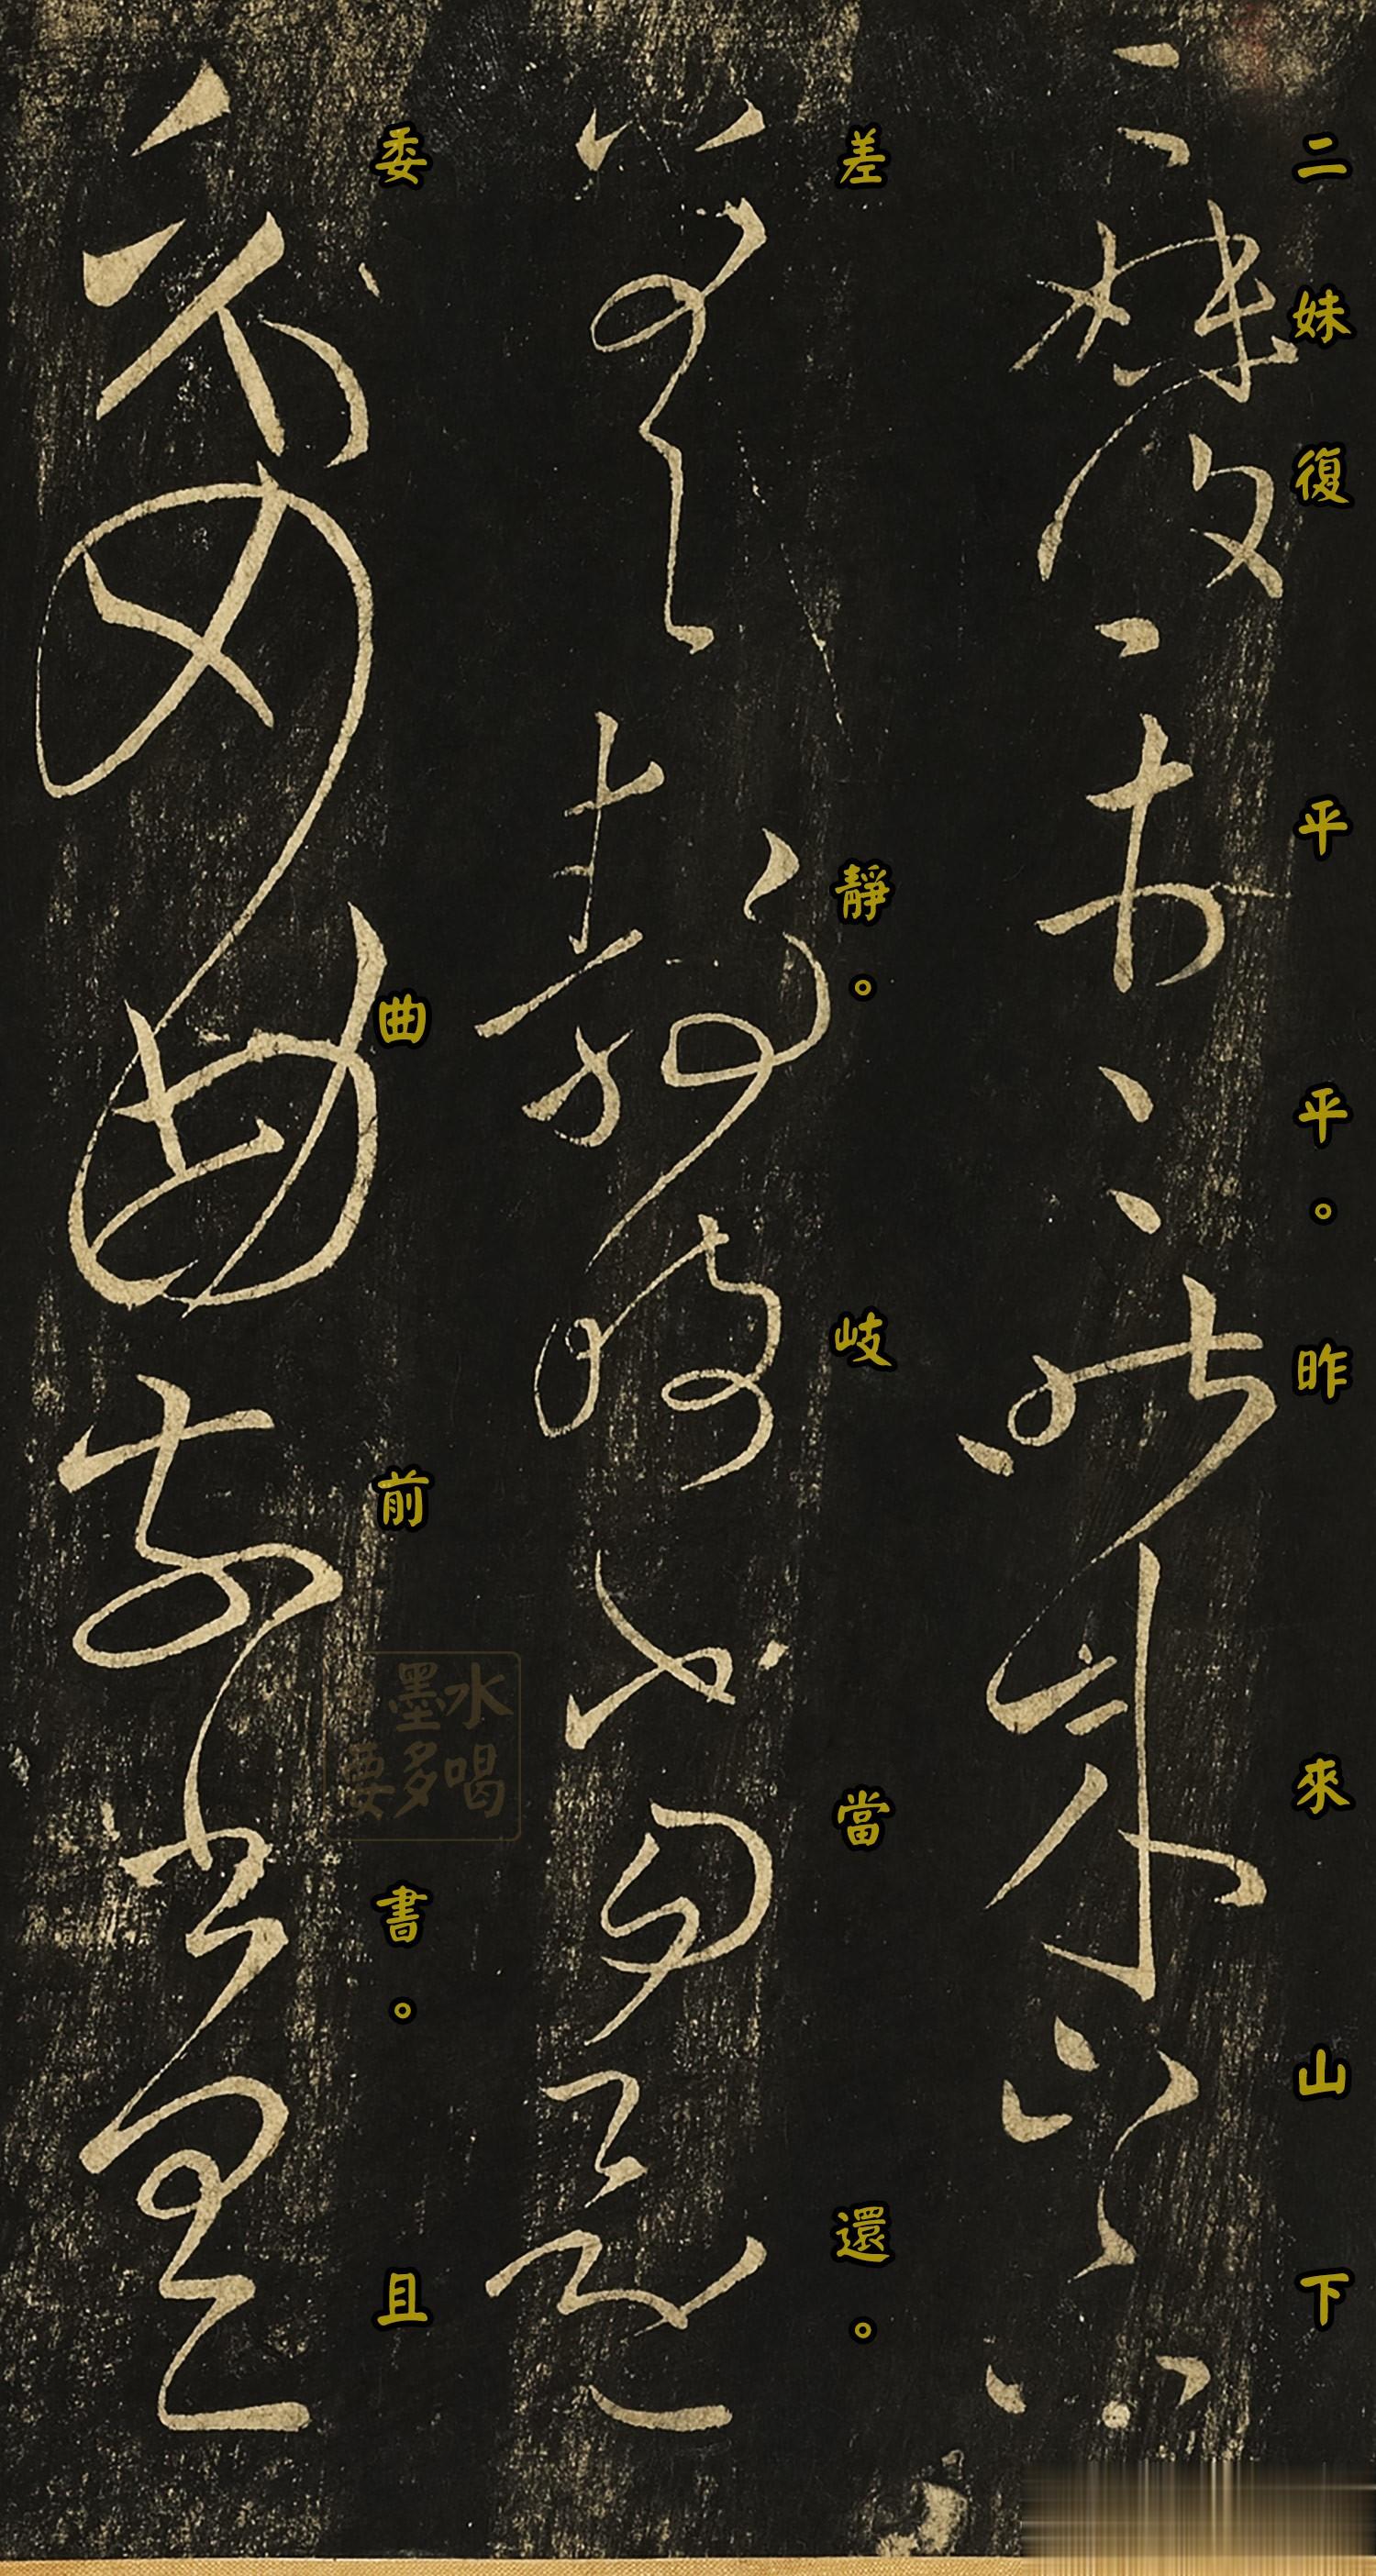 二妹復平平。昨來山下
差靜。岐當還。
委曲前書。且
水喝
墨多
要